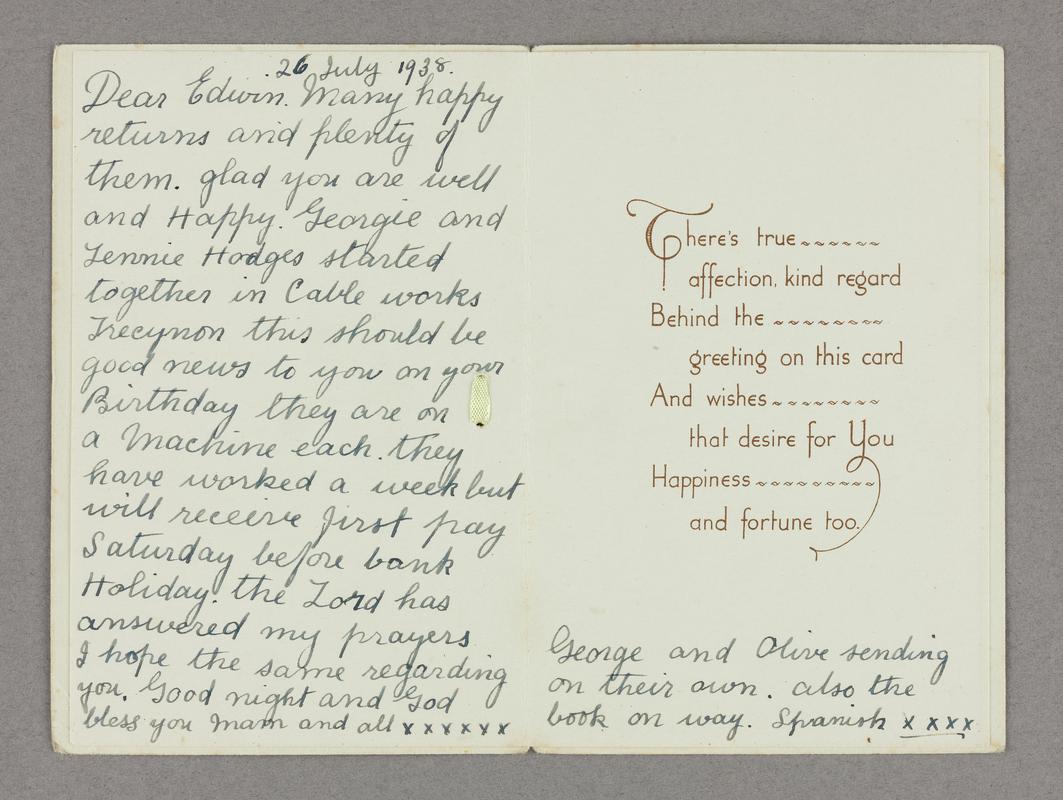 26 July 1938.
Dear Edwin. Many happy
returns and plenty of
them. glad you are well
and Happy. Georgie and
Lennie Hodges started
together in Cable works
Trecynon this should be
good news to you on your
Birthday they are on
a Machine each. they
have worked a week but
will receive first pay
Saturday before bank
Holiday. the Lord has
answered my prayers
I hope the same regarding
you. Good night and God
bless you Mam and all x x x x x x
There's true
affection, kind regard
Behind the
greeting on this card
And wishes
that desire for You
Happiness
and fortune too.
George and Olive sending
on their own. also the
book on way. Spanish x x x x